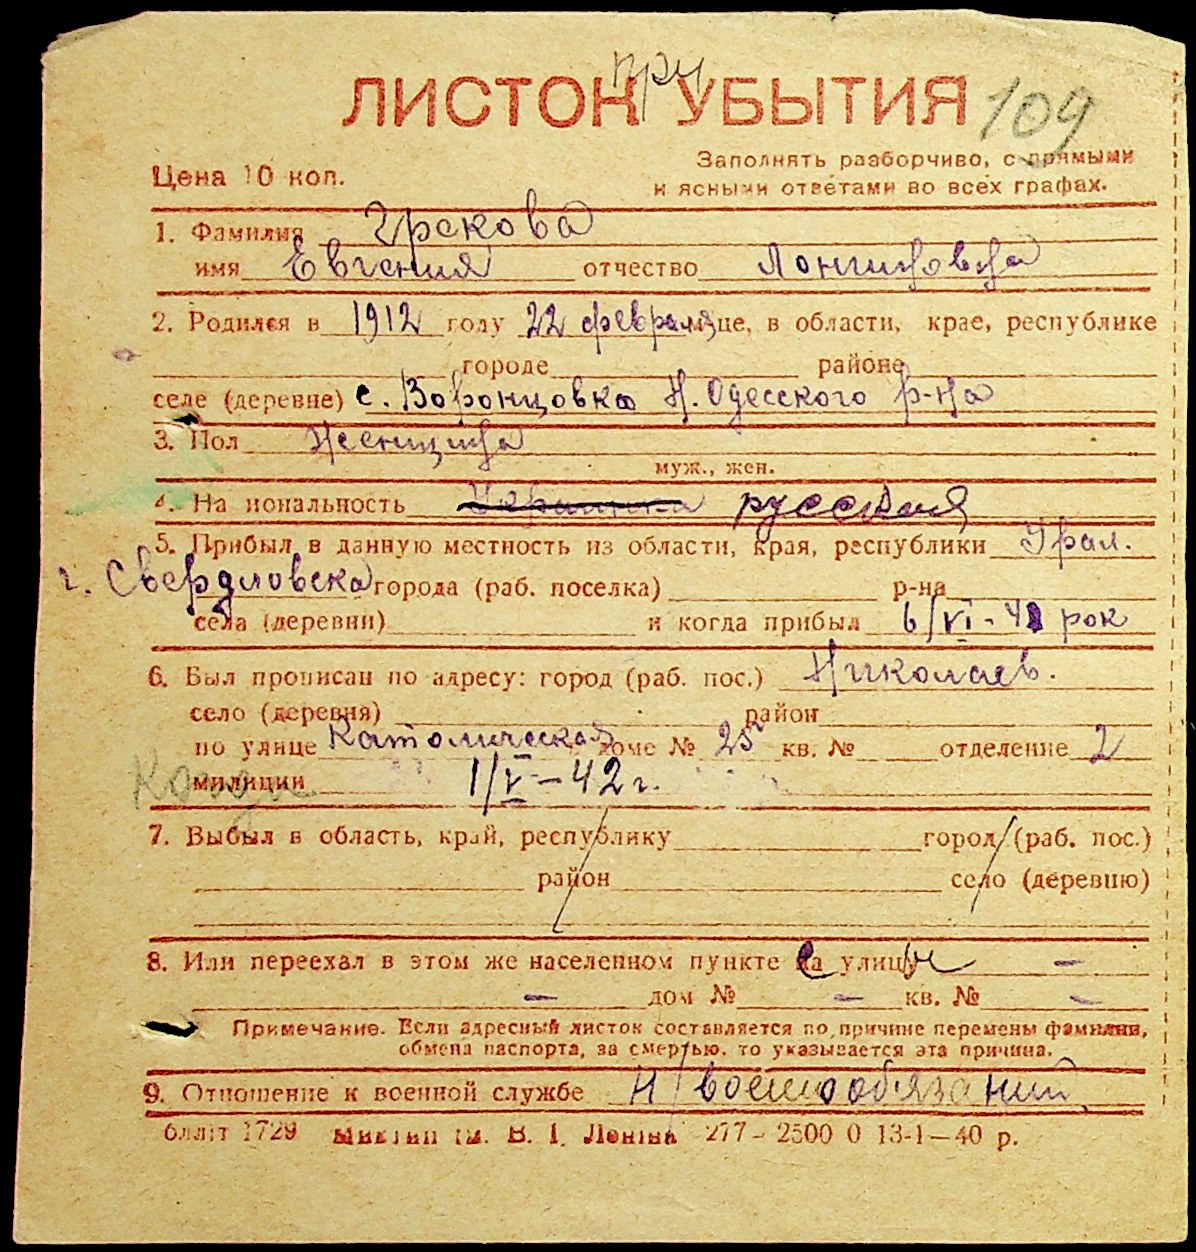 при
ЛИСТОК УБЫТИЯ 109
Цена 10 коп.
Заполнять разборчиво, с прямыми
и ясными ответами во всех графах.
1. Фамилия Грекова
имя Евгения отчество Лонгиновна
2. Родился в 1912 году 22 февраля м-це, в области, крае, республике
городе районе
селе (деревне) с. Воронцовка Н. Одесского р-на
3. Пол женщина
муж., жен.
4. На иональность Украинка русская
5. Прибыл в данную местность из области, края, республики Урал.
г. Свердловска города (раб. поселка) р-на
села (деревни) и когда прибыл 6/VI-41 рок
6. Был прописан по адресу: город (раб. пос.) Николаев.
село (деревня) район
по улице Католическая доме № 25 кв. № отделение 2
милиции 1/V-42 г.
7. Выбыл в область, край, республику город (раб. пос.)
район село (деревню)
8. Или переехал в этом же населенном пункте на улицу —
— дом № — кв. № —
Примечание. Если адресный листок составляется по причине перемены фамилии,
обмена паспорта, за смертью, то указывается эта причина.
9. Отношение к военной службе Н/военнообязаний
блліт 1729 ім. В. І. Леніна 277-2500 0 13-1-40 р.